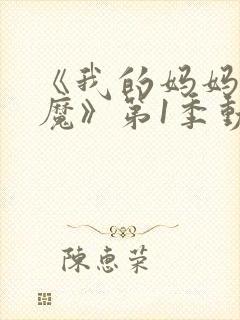 《我的妈妈
魔》第1季動
陳惠荣